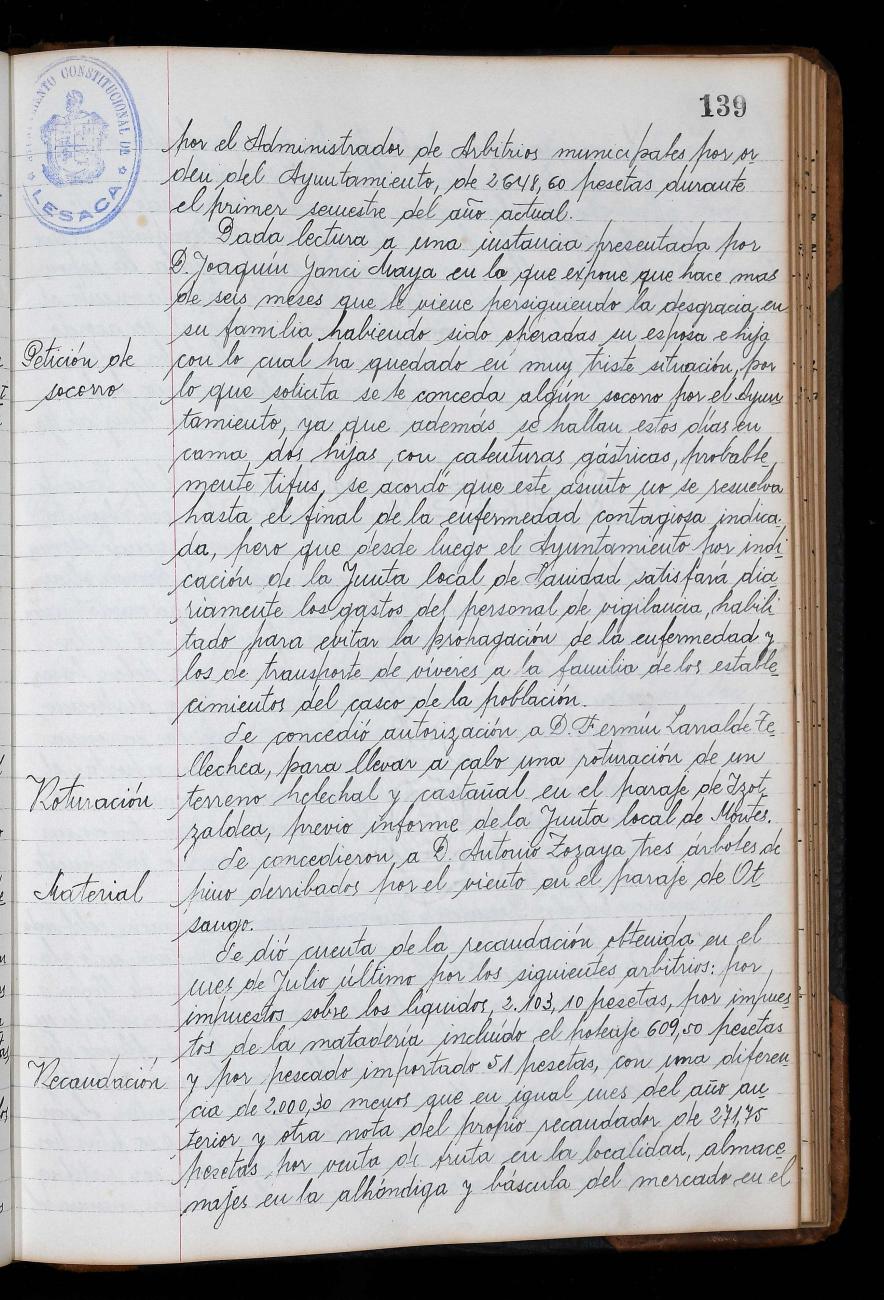 139
AYUNTAMIENTO CONSTITUCIONAL DE
LESACA
por el Administrador de Arbitrios municipales por or
den del Ayuntamiento, de 2648,60 pesetas durante
el primer semestre del año actual.
Dada lectura a una instancia presentada por
D. Joaquín Yanci Maya en lo que expone que hace mas
de seis meses que le viene persiguiendo la desgracia en
su familia habiendo sido operadas su esposa e hija
Petición de
socorro
con lo cual ha quedado en muy triste situación, por
lo que solicita se le conceda algún socorro por el Ayun
tamiento, ya que además se hallan estos días en
cama dos hijas, con calenturas gástricas, probable_
mente tifus, se acordó que este asunto no se resuelva
hasta el final de la enfermedad contagiosa indica_
da, pero que desde luego el Ayuntamiento por indi
cación de la Junta local de Sanidad satisfará dia_
riamente los gastos del personal de vigilancia, habili
tado para evitar la propagación de la enfermedad y
los de transporte de víveres a la familia de los estable_
cimientos del casco de la población.
Se concedió autorización a D. Fermín Larralde Te_
llechea, para llevar a cabo una roturación de un
Roturación
terreno helechal y castañal en el paraje de Izot_
zaldea, previo informe de la Junta local de Montes.
Se concedieron, a D. Antonio Zozaya tres árboles de
Material
pino derribados por el viento en el paraje de Ot_
sango.
Se dió cuenta de la recaudación obtenida en el
mes de Julio último por los siguientes arbitrios: por
impuestos sobre los líquidos, 2.103,10 pesetas, por impues_
tos de la matadería incluído el poteaje 609,50 pesetas
Recaudación
y por pescado importado 51 pesetas, con una diferen_
cia de 2.000,30 menos que en igual mes del año an_
terior y otra nota del propio recaudador de 271,75
pesetas por venta de fruta en la localidad, almace_
najes en la alhóndiga y báscula del mercado en el